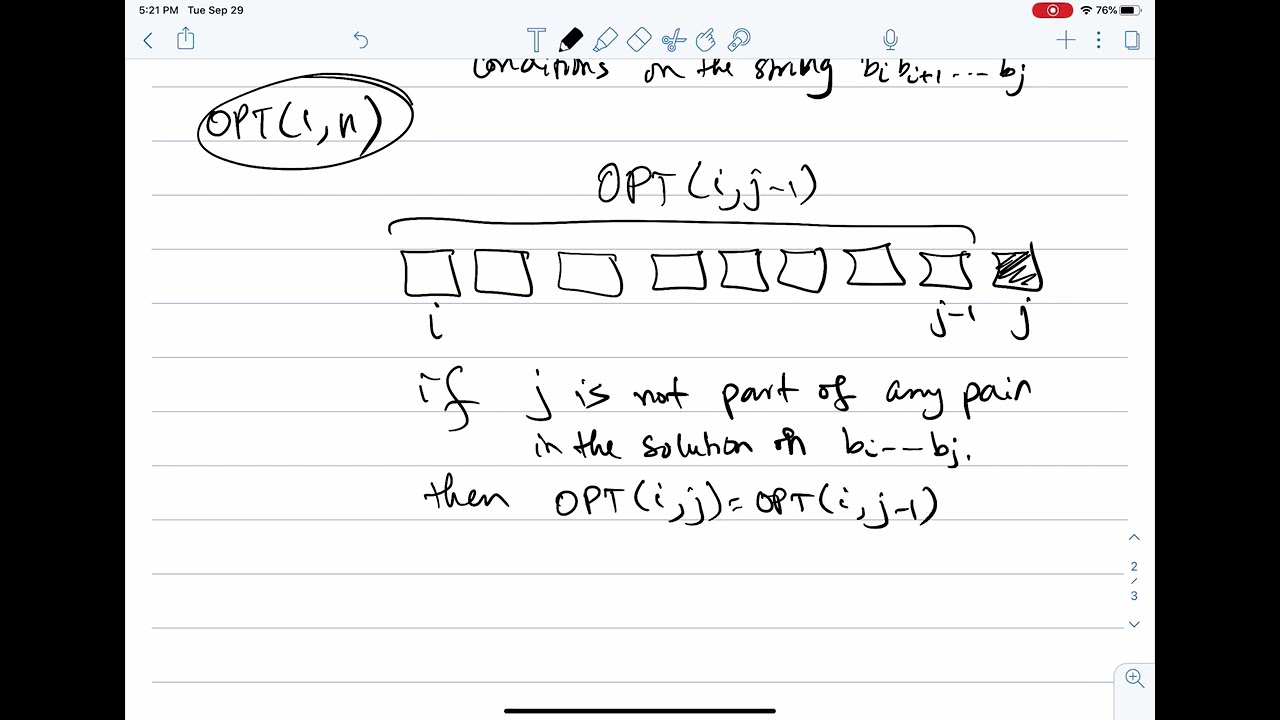 5:21 PM Tue Sep 29
76%
conditions on the string bi bi+1 ... bj
OPT(1,n)
OPT(i,j-1)
i j-1 j
if j is not part of any pair
in the solution on bi--bj.
then OPT(i,j) = OPT(i,j-1)
2
/
3